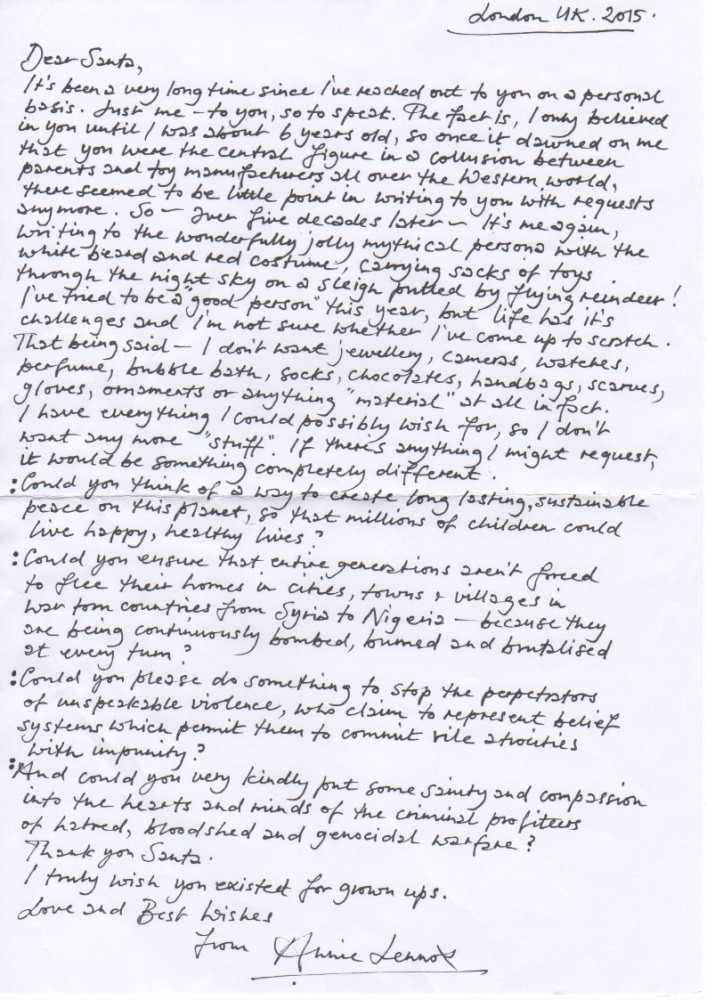 London UK. 2015.
Dear Santa,
It's been a very long time since I've reached out to you on a personal
basis. Just me – to you, so to speak. The fact is, I only believed
in you until I was about 6 years old, so once it dawned on me
that you were the central figure in a collusion between
parents and toy manufacturers all over the Western world,
there seemed to be little point in writing to you with requests
anymore. So – over five decades later – It's me again,
writing to the wonderfully jolly mythical persona with the
white beard and red costume, carrying sacks of toys
through the night sky on a sleigh pulled by flying reindeer!
I've tried to be a "good person" this year, but life has it's
challenges and I'm not sure whether I've come up to scratch.
That being said – I don't want jewellery, cameras, watches,
perfume, bubble bath, socks, chocolates, handbags, scarves,
gloves, ornaments or anything "material" at all in fact.
I have everything I could possibly wish for, so I don't
want any more "stuff". If there's anything I might request,
it would be something completely different.
: Could you think of a way to create long lasting, sustainable
peace on this planet, so that millions of children could
live happy, healthy lives?
: Could you ensure that entire generations aren't forced
to flee their homes in cities, towns & villages in
war torn countries from Syria to Nigeria – because they
are being continuously bombed, burned and brutalised
at every turn?
: Could you please do something to stop the perpetrators
of unspeakable violence, who claim to represent belief
systems which permit them to commit vile atrocities
with impunity?
: And could you very kindly put some sanity and compassion
into the hearts and minds of the criminal profiteers
of hatred, bloodshed and genocidal warfare?
Thank you Santa.
I truly wish you existed for grown ups.
Love and Best Wishes
from Annie Lennox